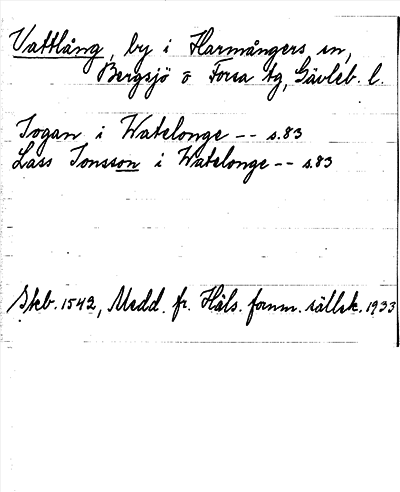 Vattlång, by i Harmångers sn,
Bergsjö o. Forsa tg, Gävleb. l.
Jogan i Watelonge -- s.83
Lass Jonsson i Watelonge -- s.83
Skb. 1542, Medd. fr. Häls. fornm. sällsk. 1933